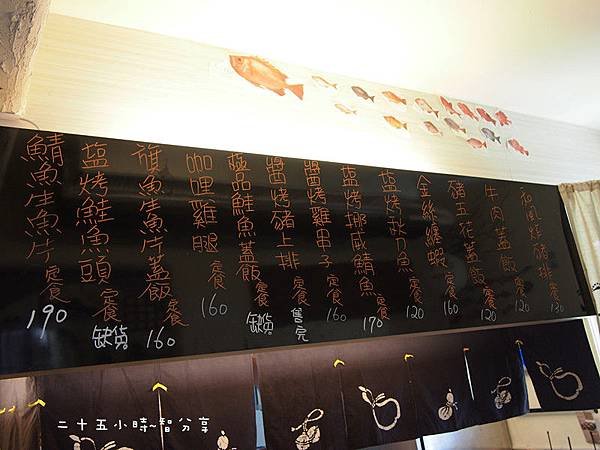 和風烤豬排定餐 130
牛肉蓋飯餐 120
豬五花蓋飯餐 120
金絲纏蝦定餐 160
塩烤秋刀魚定餐 120
塩烤挪威鯖魚定餐 170
醬烤雞串子定餐 160
醬烤豬上排定餐 售完
極品鮭魚蓋飯餐 缺貨
咖哩雞腿定餐 160
旗魚生魚片蓋飯餐 160
塩烤鮭魚頭定餐 缺貨
鯖魚生魚片定餐 190
二十五小時~智分享